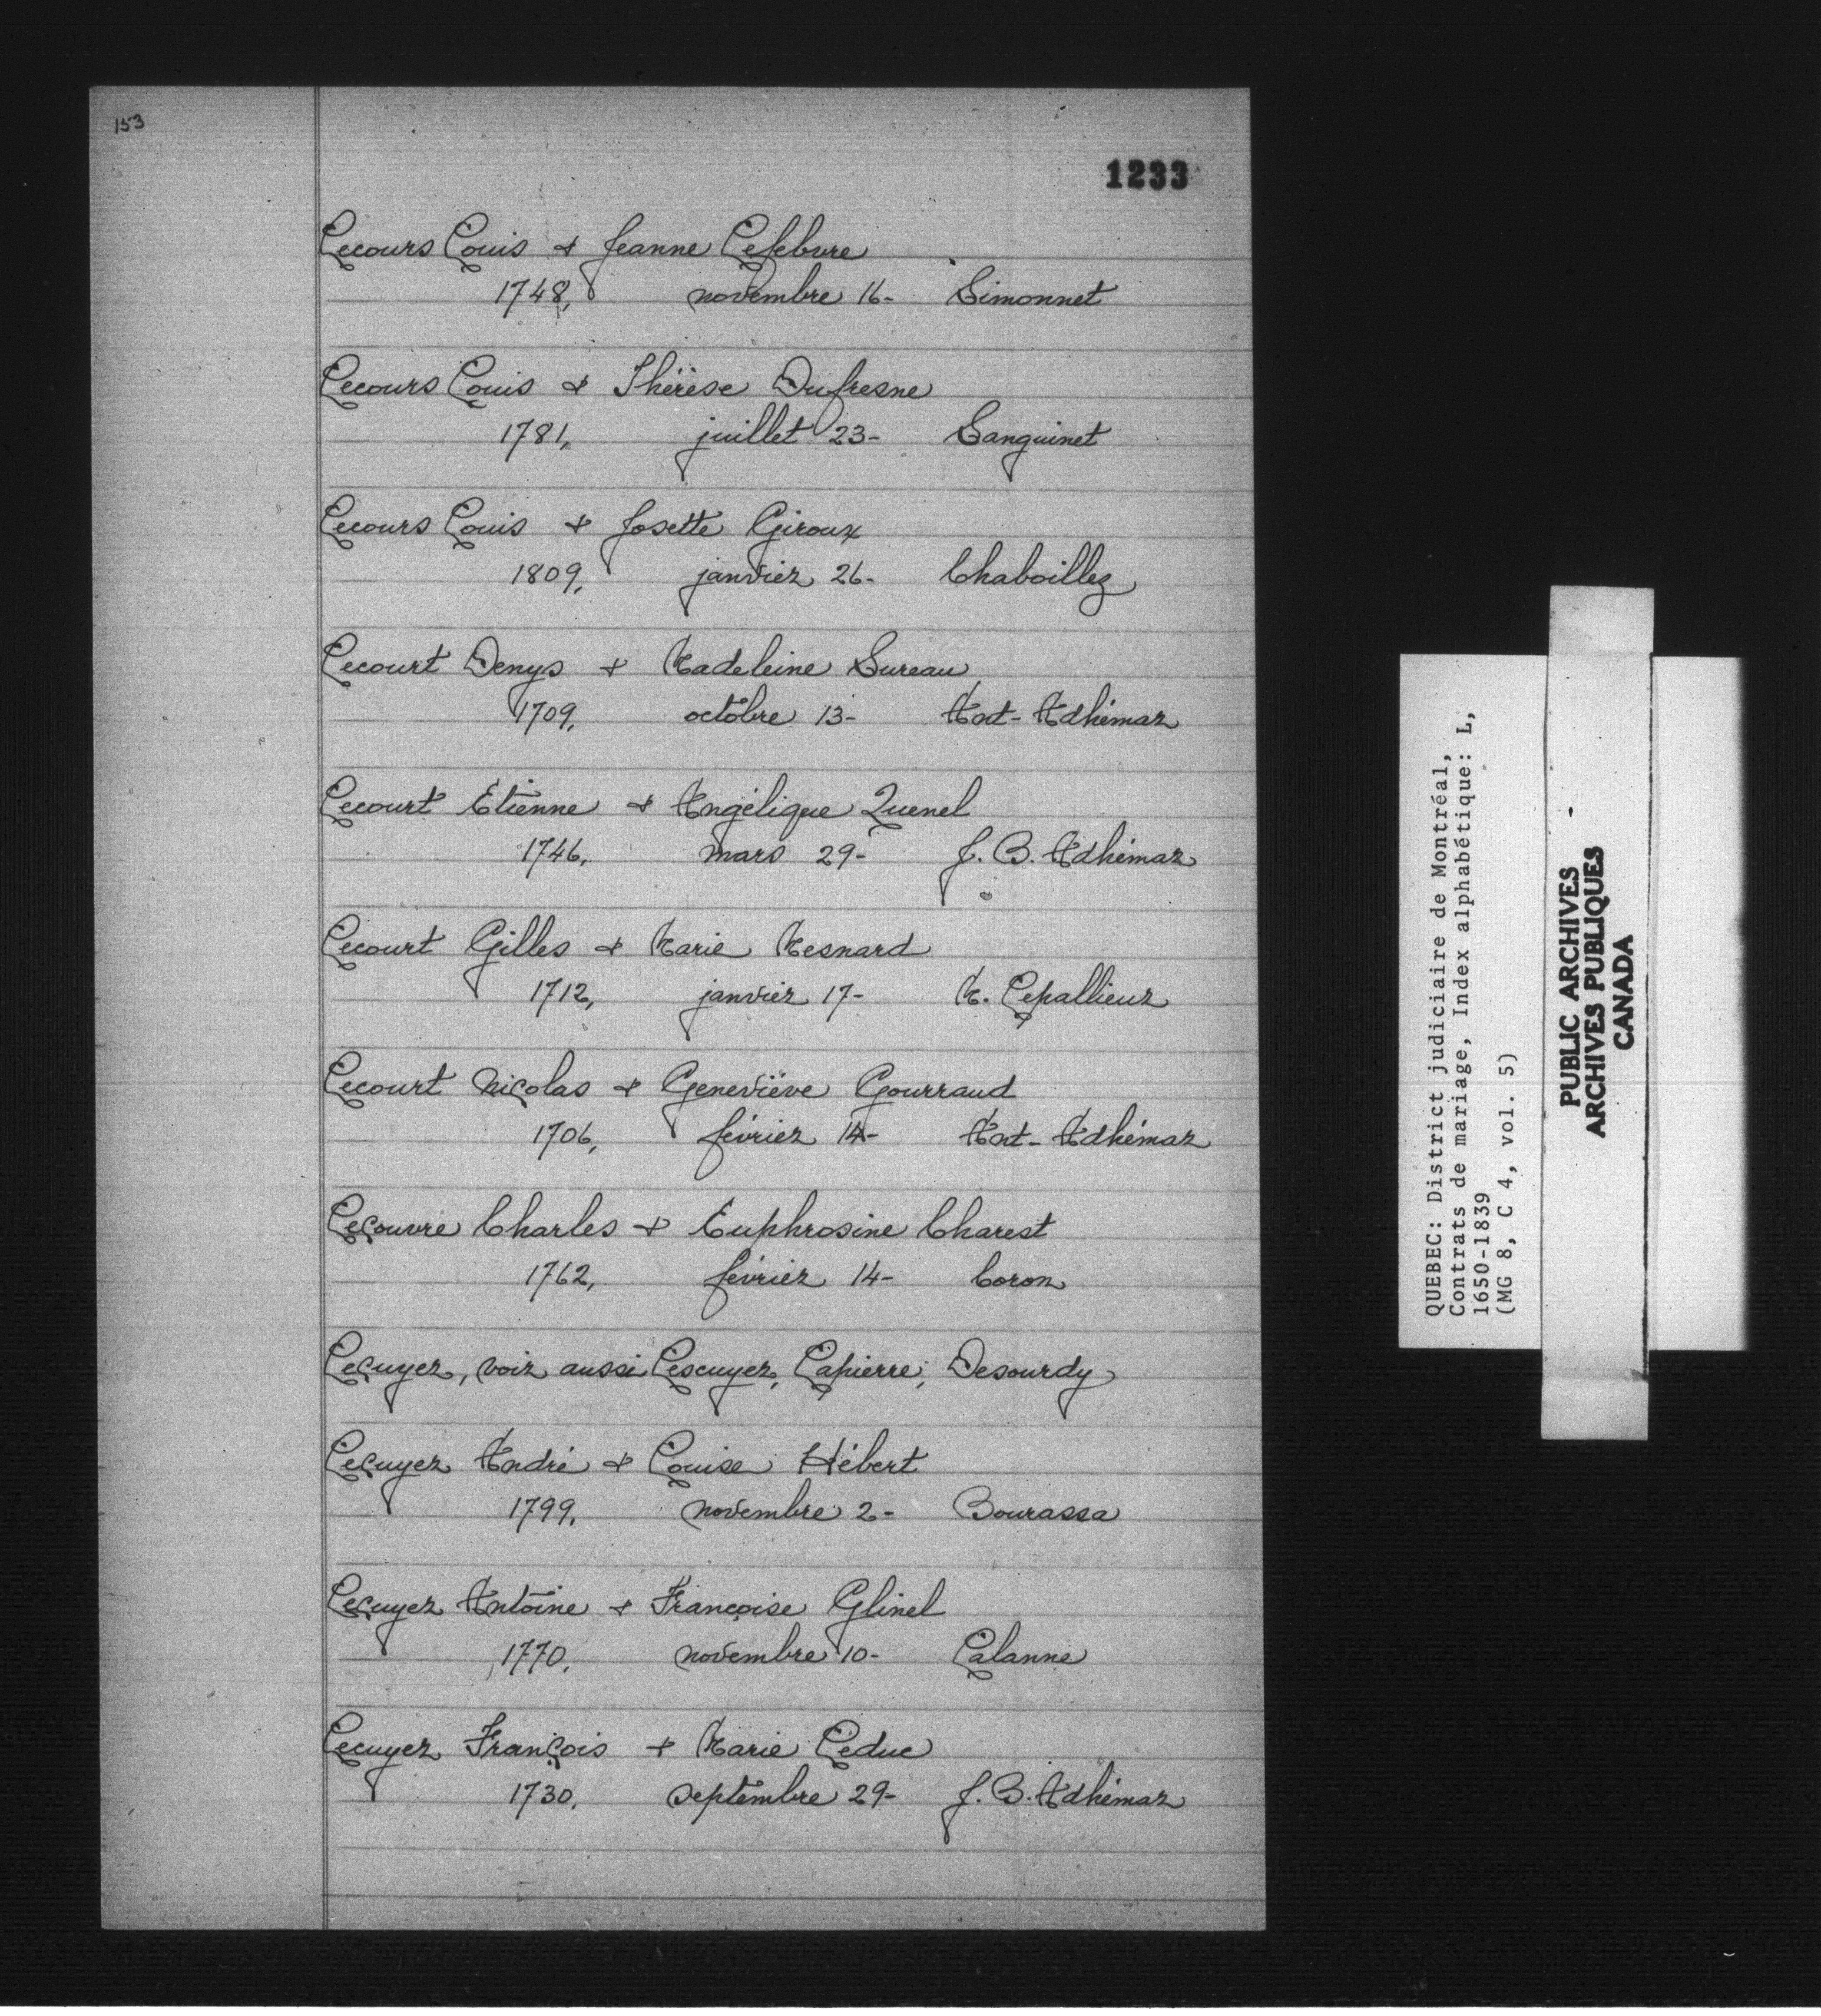 153
1233
Lecours Louis & Jeanne Lefebvre
1748, novembre 16- Simonnet
Lecours Louis & Thérèse Dufresne
1781, juillet 23- Sanguinet
Lecours Louis & Josette Giroux
1809, janvier 26- Chaboillez
Lecourt Denys & Madeleine Sureau
1709, octobre 13- Ant- Adhémar
Lecourt Etienne & Angélique Quenel
1746, mars 29- J. B. Adhémar
Lecourt Gilles & Marie Mesnard
1712, janvier 17- M. Lepallieur
Lecourt Nicolas & Geneviève Gourraud
1706, février 14- Ant- Adhémar
Lecouvre Charles & Euphrosine Charest
1762, février 14- Coron
Lecuyer, voir aussi Lescuyer, Lapierre, Desourdy
Lecuyer André & Louise Hébert
1799, novembre 2- Bourassa
Lecuyer Antoine & Françoise Glinel
1770, novembre 10- Lalanne
Lecuyer François & Marie Leduc
1730, septembre 29- J. B. Adhémar
QUEBEC: District judiciaire de Montréal,
Contrats de mariage, Index alphabétique: L,
1650-1839
(MG 8, C 4, vol. 5)
PUBLIC ARCHIVES
ARCHIVES PUBLIQUES
CANADA